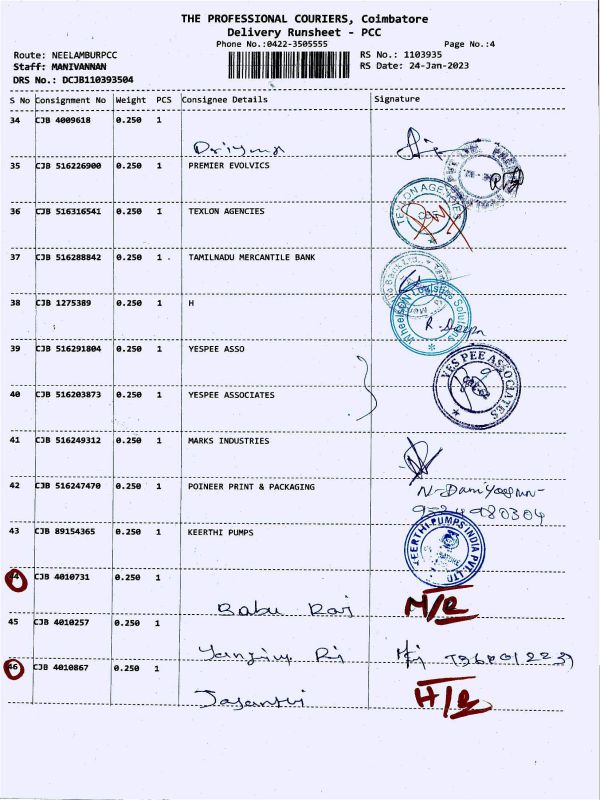 THE PROFESSIONAL COURIERS, Coimbatore
Delivery Runsheet - PCC
Phone No.:0422-3505555 Page No.:4
Route: NEELAMBURPCC RS No.: 1103935
Staff: MANIVANNAN RS Date: 24-Jan-2023
DRS No.: DCJB110393504
S No Consignment No Weight PCS Consignee Details Signature
34 CJB 4009618 0.250 1
35 CJB 516226900 0.250 1 PREMIER EVOLVICS
36 CJB 516316541 0.250 1 TEXLON AGENCIES
TEXLON AGENCIES
CBE
37 CJB 516288842 0.250 1 . TAMILNADU MERCANTILE BANK
38 CJB 1275389 0.250 1 H
Wheelson Logistics Solutions
R. Deepa
39 CJB 516291804 0.250 1 YESPEE ASSO
YES PEE ASSOCIATES
40 CJB 516203873 0.250 1 YESPEE ASSOCIATES
41 CJB 516249312 0.250 1 MARKS INDUSTRIES
42 CJB 516247470 0.250 1 POINEER PRINT & PACKAGING
43 CJB 89154365 0.250 1 KEERTHI PUMPS
KEERTHI PUMPS INDIA PVT. LTD
44 CJB 4010731 0.250 1
Babu Raj
45 CJB 4010257 0.250 1
46 CJB 4010867 0.250 1
H/R